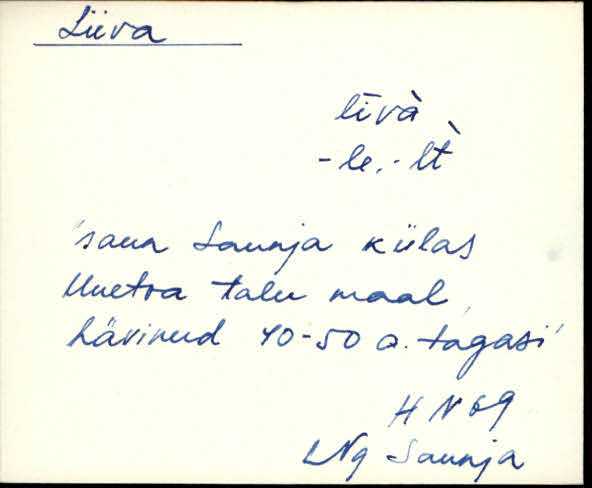 Liiva
līvà
-le, -lt̀
'saun Saunja külas
Uuetoa talu maal,
hävinud 40-50 a. tagasi'
H N 69
LNg Saunja